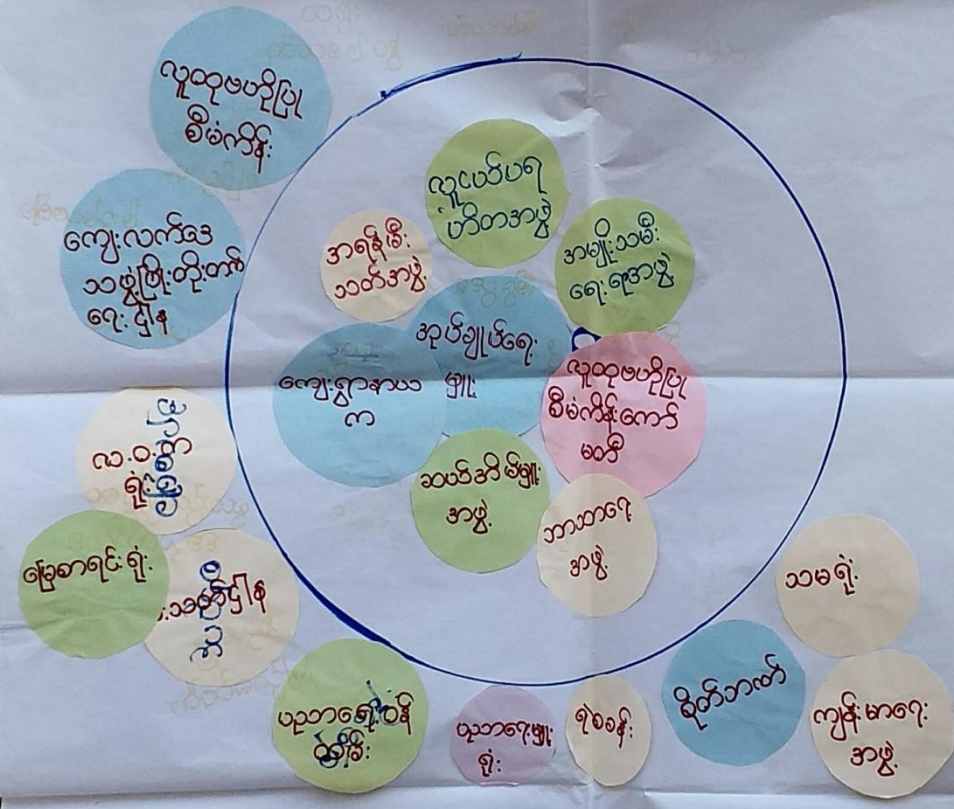 လူထုဗဟိုပြု
စီမံကိန်း
ကျေးလက်ဒေ
သဖွံ့ဖြိုးတိုးတက်
ရေးဌာန
လူငယ်ပရ
ဟိတအဖွဲ့
အရန်မီး
သတ်အဖွဲ့
အမျိုးသမီး
ရေးရာအဖွဲ့
အုပ်ချုပ်ရေး
မှူး
ကျေးရွာနာယ
က
လူထုဗဟိုပြု
စီမံကိန်းကော်
မတီ
ဆယ်အိမ်မှူး
အဖွဲ့
ဘာသာရေး
အဖွဲ့
လ.ဝ.က
ရုံး
မြေစာရင်းရုံး
သမရုံး
ပညာရေးမှူး
ရုံး
ရဲစခန်း
စိုက်ဘဏ်
ကျန်းမာရေး
အဖွဲ့